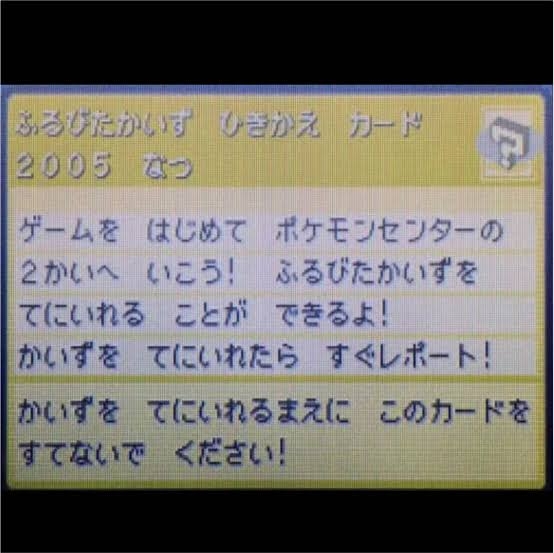 ふるびたかいず　ひきかえ　カード
２００５　なつ
ゲームを　はじめて　ポケモンセンターの
２かいへ　いこう！　ふるびたかいずを
てにいれる　ことが　できるよ！
かいずを　てにいれたら　すぐレポート！
かいずを　てにいれるまえに　このカードを
すてないで　ください！